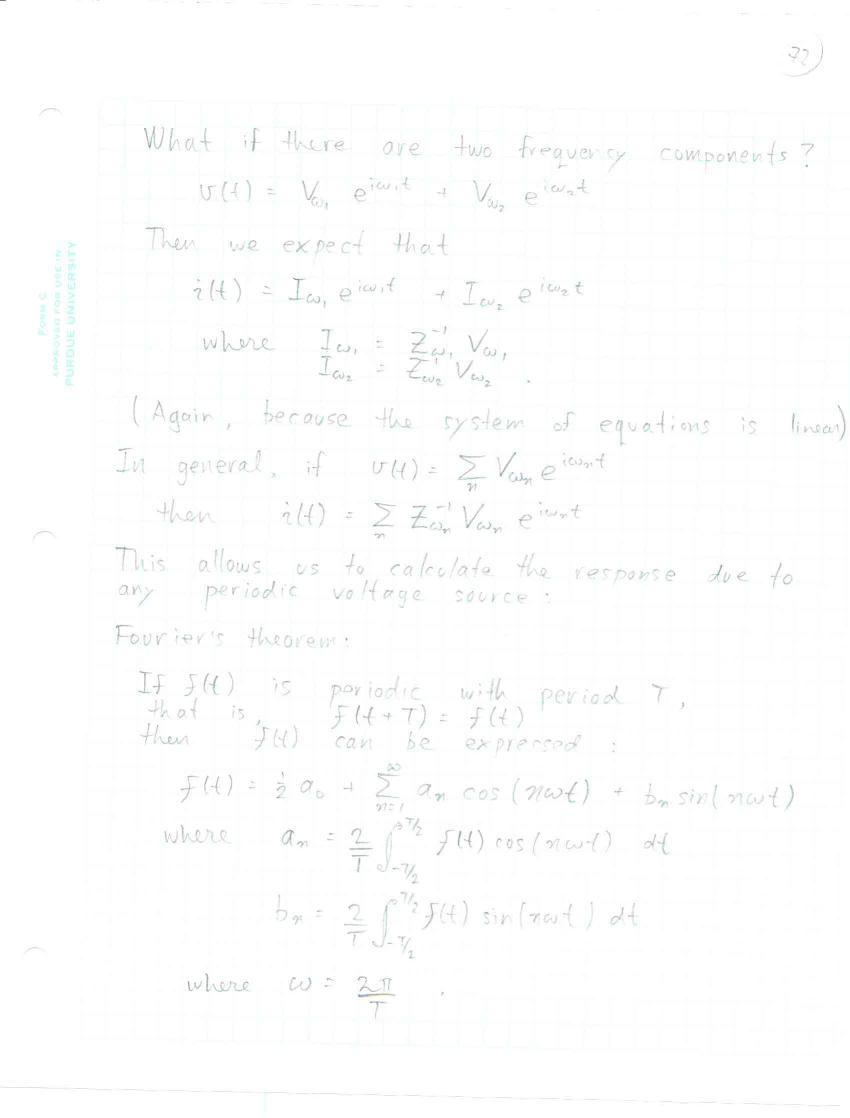 72
What if there are two frequency components?
v(t) = V_ω₁ e^{iω₁t} + V_ω₂ e^{iω₂t}
Then we expect that
i(t) = I_ω₁ e^{iω₁t} + I_ω₂ e^{iω₂t}
where I_ω₁ = Z⁻¹_ω₁ V_ω₁
I_ω₂ = Z⁻¹_ω₂ V_ω₂ .
(Again, because the system of equations is linear)
In general, if v(t) = Σ_n V_ωn e^{iω_n t}
then i(t) = Σ_n Z⁻¹_ωn V_ωn e^{iω_n t}
This allows us to calculate the response due to
any periodic voltage source:
Fourier's theorem:
If f(t) is periodic with period T,
that is, f(t + T) = f(t)
then f(t) can be expressed :
f(t) = ½ a₀ + Σ_{n=1}^{∞} a_n cos(nωt) + b_n sin(nωt)
where a_n = 2/T ∫_{-T/2}^{T/2} f(t) cos(nωt) dt
b_n = 2/T ∫_{-T/2}^{T/2} f(t) sin(nωt) dt
where ω = 2π/T .
FORM C
APPROVED FOR USE IN
PURDUE UNIVERSITY